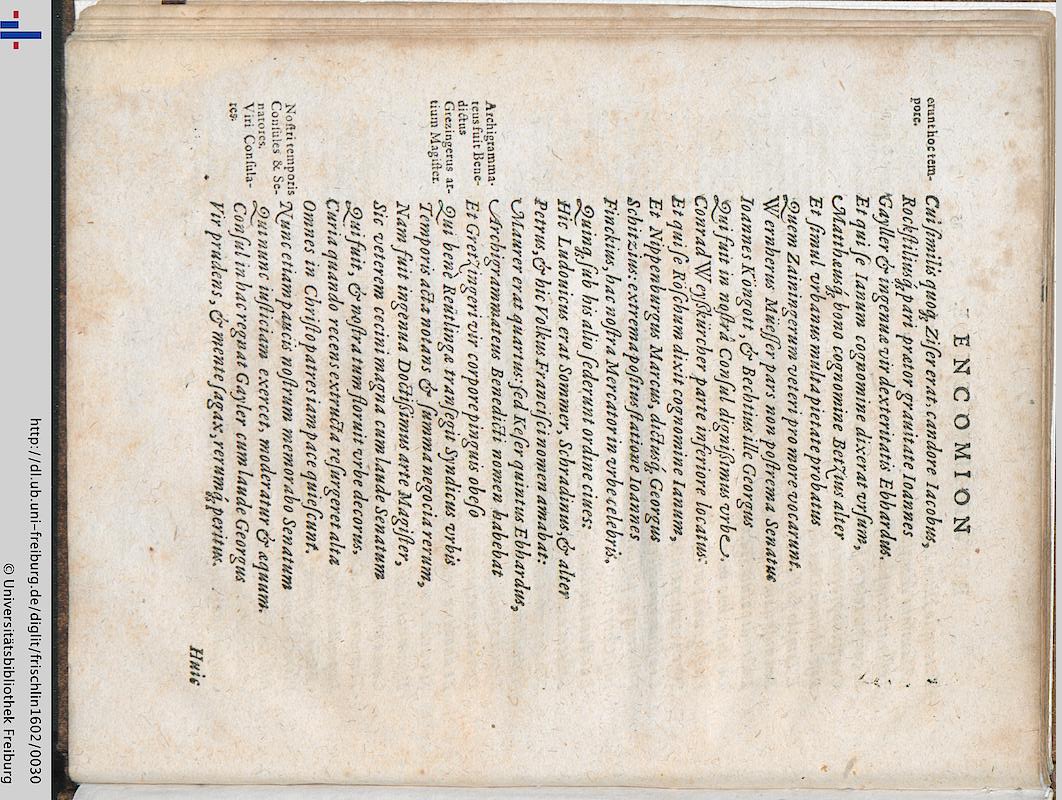 ENCOMION
erunt hoc tem-
pore.
Cui similis quoq; Ziser erat candore Iacobus,
Rockstiliusq; pari prætor gravitate Ioannes
Gayller & ingenuæ vir dexteritatis Ebhardus.
Et qui se Ianum cognomine dixerat vrsum,
Matthæusq; bono cognomine Betzius alter
Et simul vrbanus multa pietate probatus
Quem Zainingerum veteri pro more vocarunt.
Wernherus Müesser pars non postrema Senatus
Ioannes Köngott, & Bechtius ille Georgus
Qui fuit in nostrâ Consul dignissimus vrbe,
Conrad Weysskürcher parte inferiore locatus.
Et qui se Roschum dixit cognomine Ianum,
Et Nippenburgus Marcus, dictusq; Georgus
Schitzius: extrema positus statione Ioannes
Finckius, hac nostra Mercator in vrbe celebris.
Quinq; sub his alio sederunt ordine ciues:
Hic Ludouicus erat Sommer, Schradinus, & alter
Petrus, & hic Volkus Francisci nomen amabat:
Maurer erat quartus: sed Keser quintus Ebhardus,
Archigramma-
teus fuit Bene-
dictus
Grezingerus ar-
tium Magister.
Archigrammateus Benedicti nomen habebat
Et Gretzingeri vir corpore pinguis obeso
Qui benè Reütlingæ transegit Syndicus vrbis
Temporis acta notans & summa negocia rerum,
Nam fuit ingenua Doctissimus arte Magister,
Sic veterem cecini magna cum laude Senatum
Qui fuit, & nostra tum floruit vrbe decorus,
Curia quando recens extructa resurgeret alta
Omnes in Christo patres iam pace quiescunt.
Nostri temporis
Consules & Se-
natores.
Viri Consula-
res.
Nunc etiam paucis nostrum memorabo Senatum
Qui nunc iusticiam exercet, moderatur & æquum.
Consul in hac regnat Gayler cum laude Georgus
Vir prudens, & mente sagax, rerumq; peritus.
Huic
http://dl.ub.uni-freiburg.de/diglit/frischlin1602/0030
© Universitätsbibliothek Freiburg